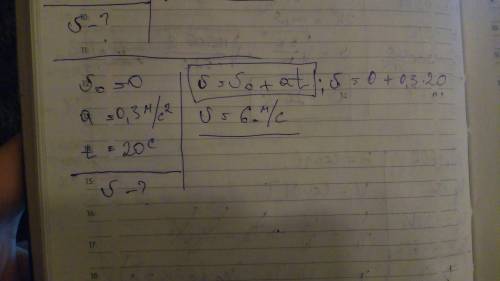 υ - ?
υ₀ = 0
a = 0,3 м/с²
t = 20 с
υ - ?
υ = υ₀ + at ; υ = 0 + 0,3·20
υ = 6 м/с
15
16
17
18